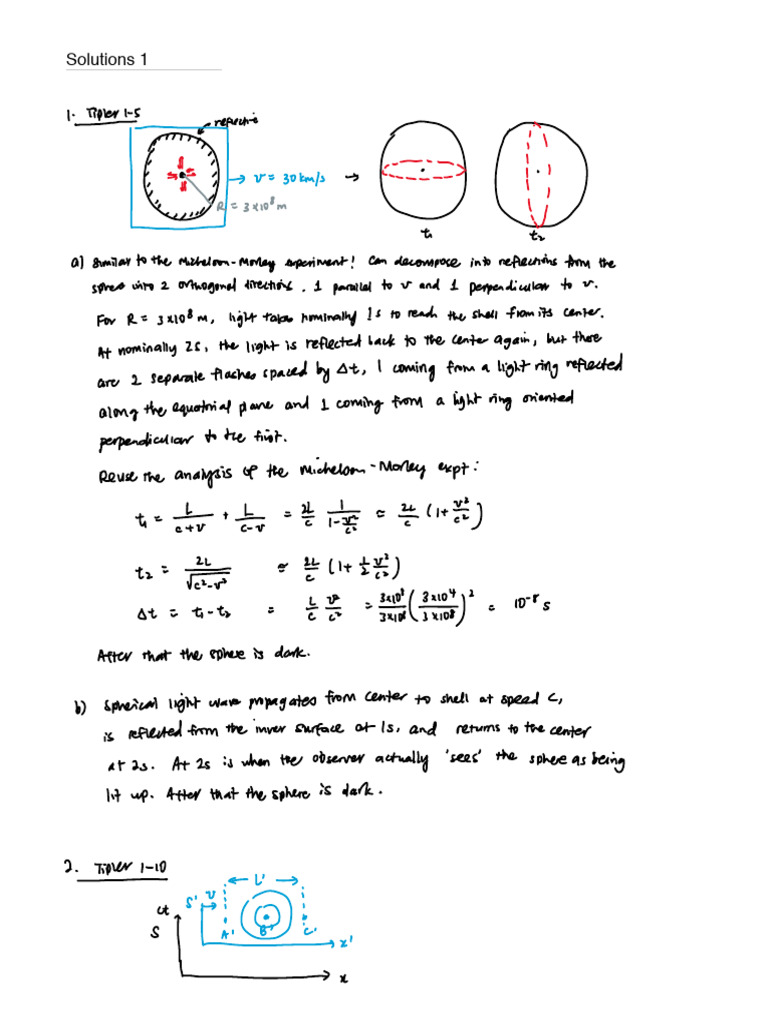 Solutions 1
1. Tipler 1-5
reflective
v = 30 km/s
R = 3×10⁸ m
t₁
t₂
a) Similar to the Michelson-Morley experiment! Can decompose into reflections from the
sphere into 2 orthogonal directions, 1 parallel to v and 1 perpendicular to v.
For R = 3×10⁸ m, light takes nominally 1s to reach the shell from its center.
At nominally 2s, the light is reflected back to the center again, but there
are 2 separate flashes spaced by Δt, 1 coming from a light ring reflected
along the equatorial plane and 1 coming from a light ring oriented
perpendicular to the first.
Reuse the analysis of the Michelson-Morley expt:
t₁ = L/(c+v) + L/(c-v) = 2L/c 1/(1-v²/c²) ≈ 2L/c (1+v²/c²)
t₂ = 2L/√(c²-v²) ≈ 2L/c (1+½ v²/c²)
Δt = t₁-t₂ = L/c v²/c² = 3×10⁸/3×10⁸ (3×10⁴/3×10⁸)² = 10⁻⁸ s
After that the sphere is dark.
b) Spherical light wave propagates from center to shell at speed c,
is reflected from the inner surface at 1s, and returns to the center
at 2s. At 2s is when the observer actually 'sees' the sphere as being
lit up. After that the sphere is dark.
2. Tipler 1-10
L'
S' v
ct
S
A' B' C'
x'
x